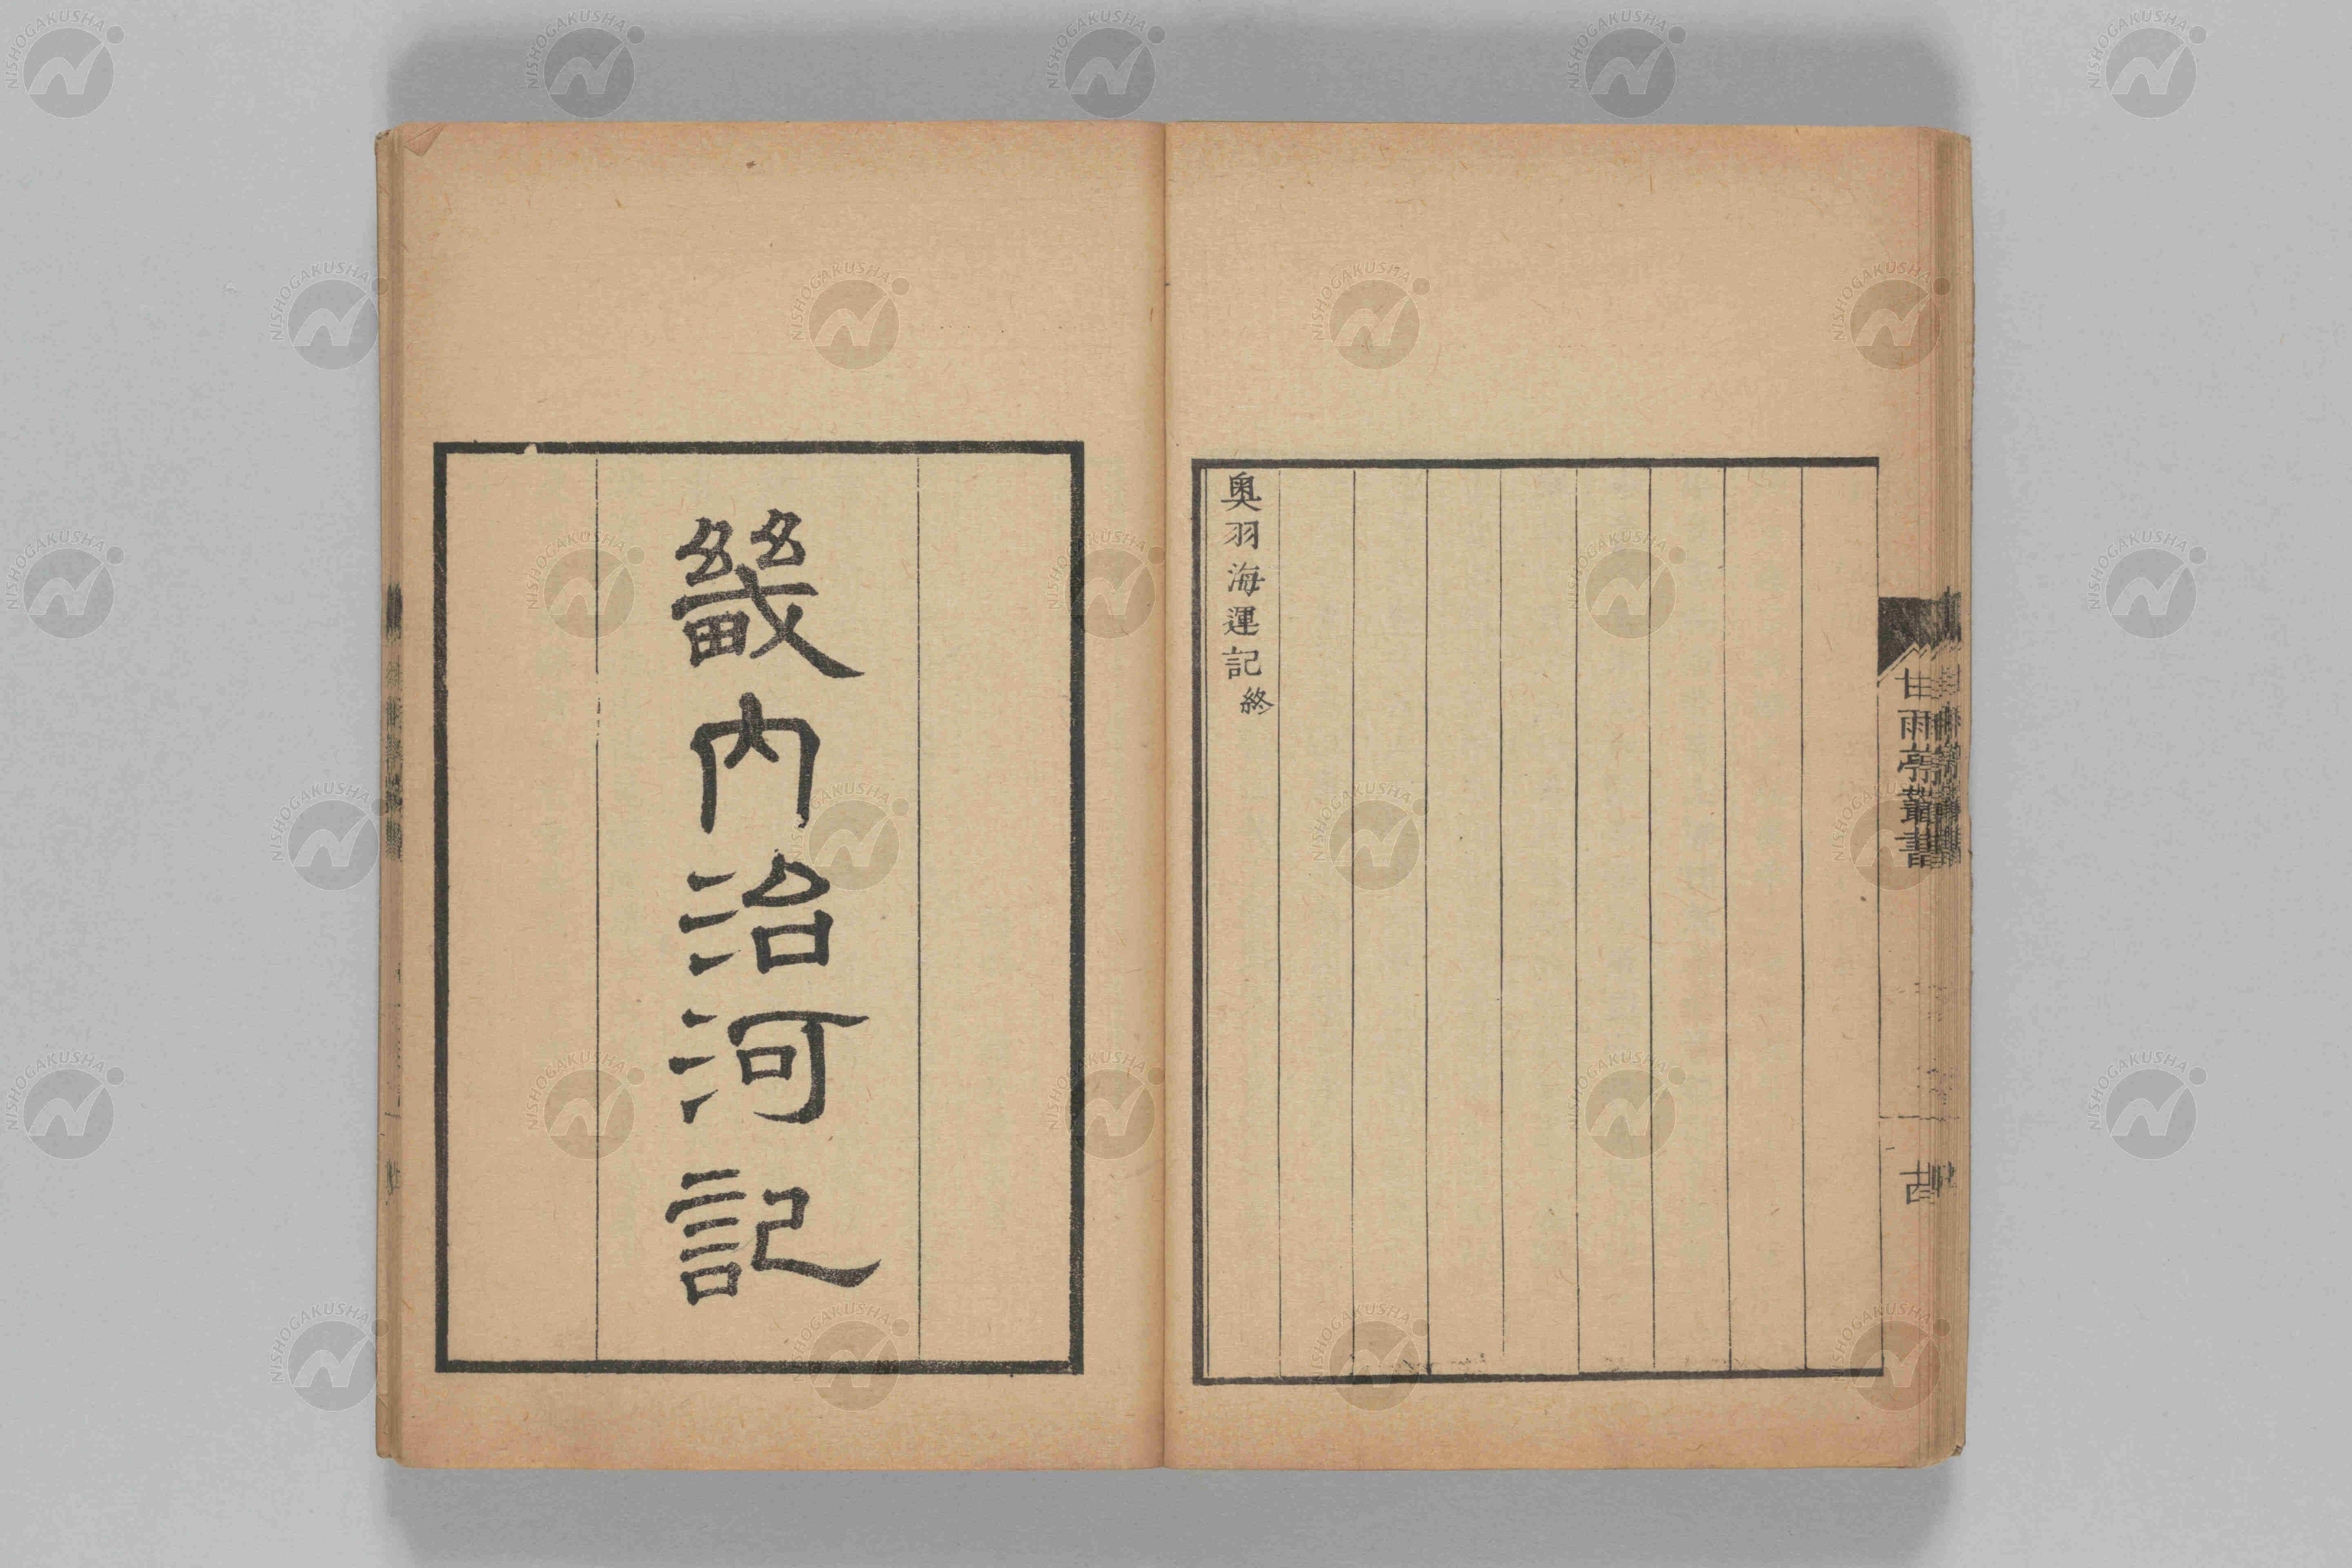 奧羽海運記終
甘雨亭叢書
畿內治河記
NISHOGAKUSHA